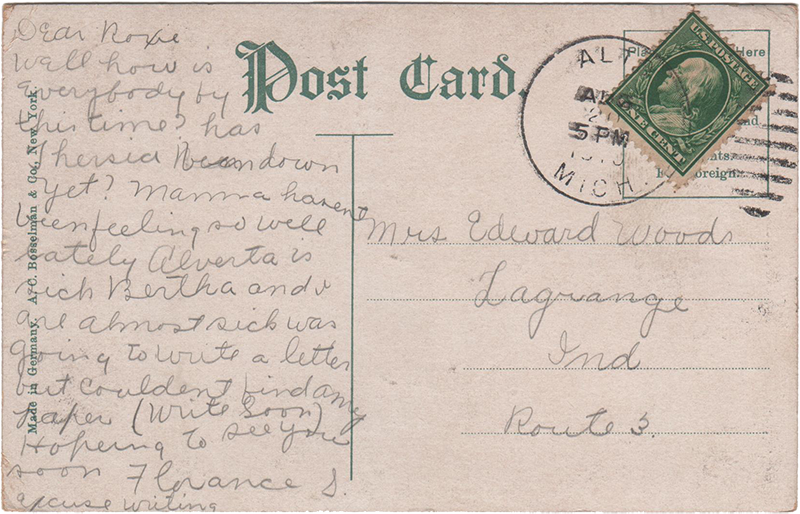 Dear Roxie
Well how is
Everybody by
this time? has
Thersia been down
yet? Mamma havent
been feeling so well
lately Alverta is
sick Bertha and I
are almost sick was
going to write a letter
but couldent find any
paper (Write Soon)
Hopeing to see you
soon Florance S.
excuse writing
Made in Germany. A. C. Bosselman & Co., New York.
Post Card.
Here
Foreign.
ALT
5 PM
MICH.
U.S. POSTAGE
ONE CENT
Mrs Edward Woods
Lagrange
Ind
Route 3.